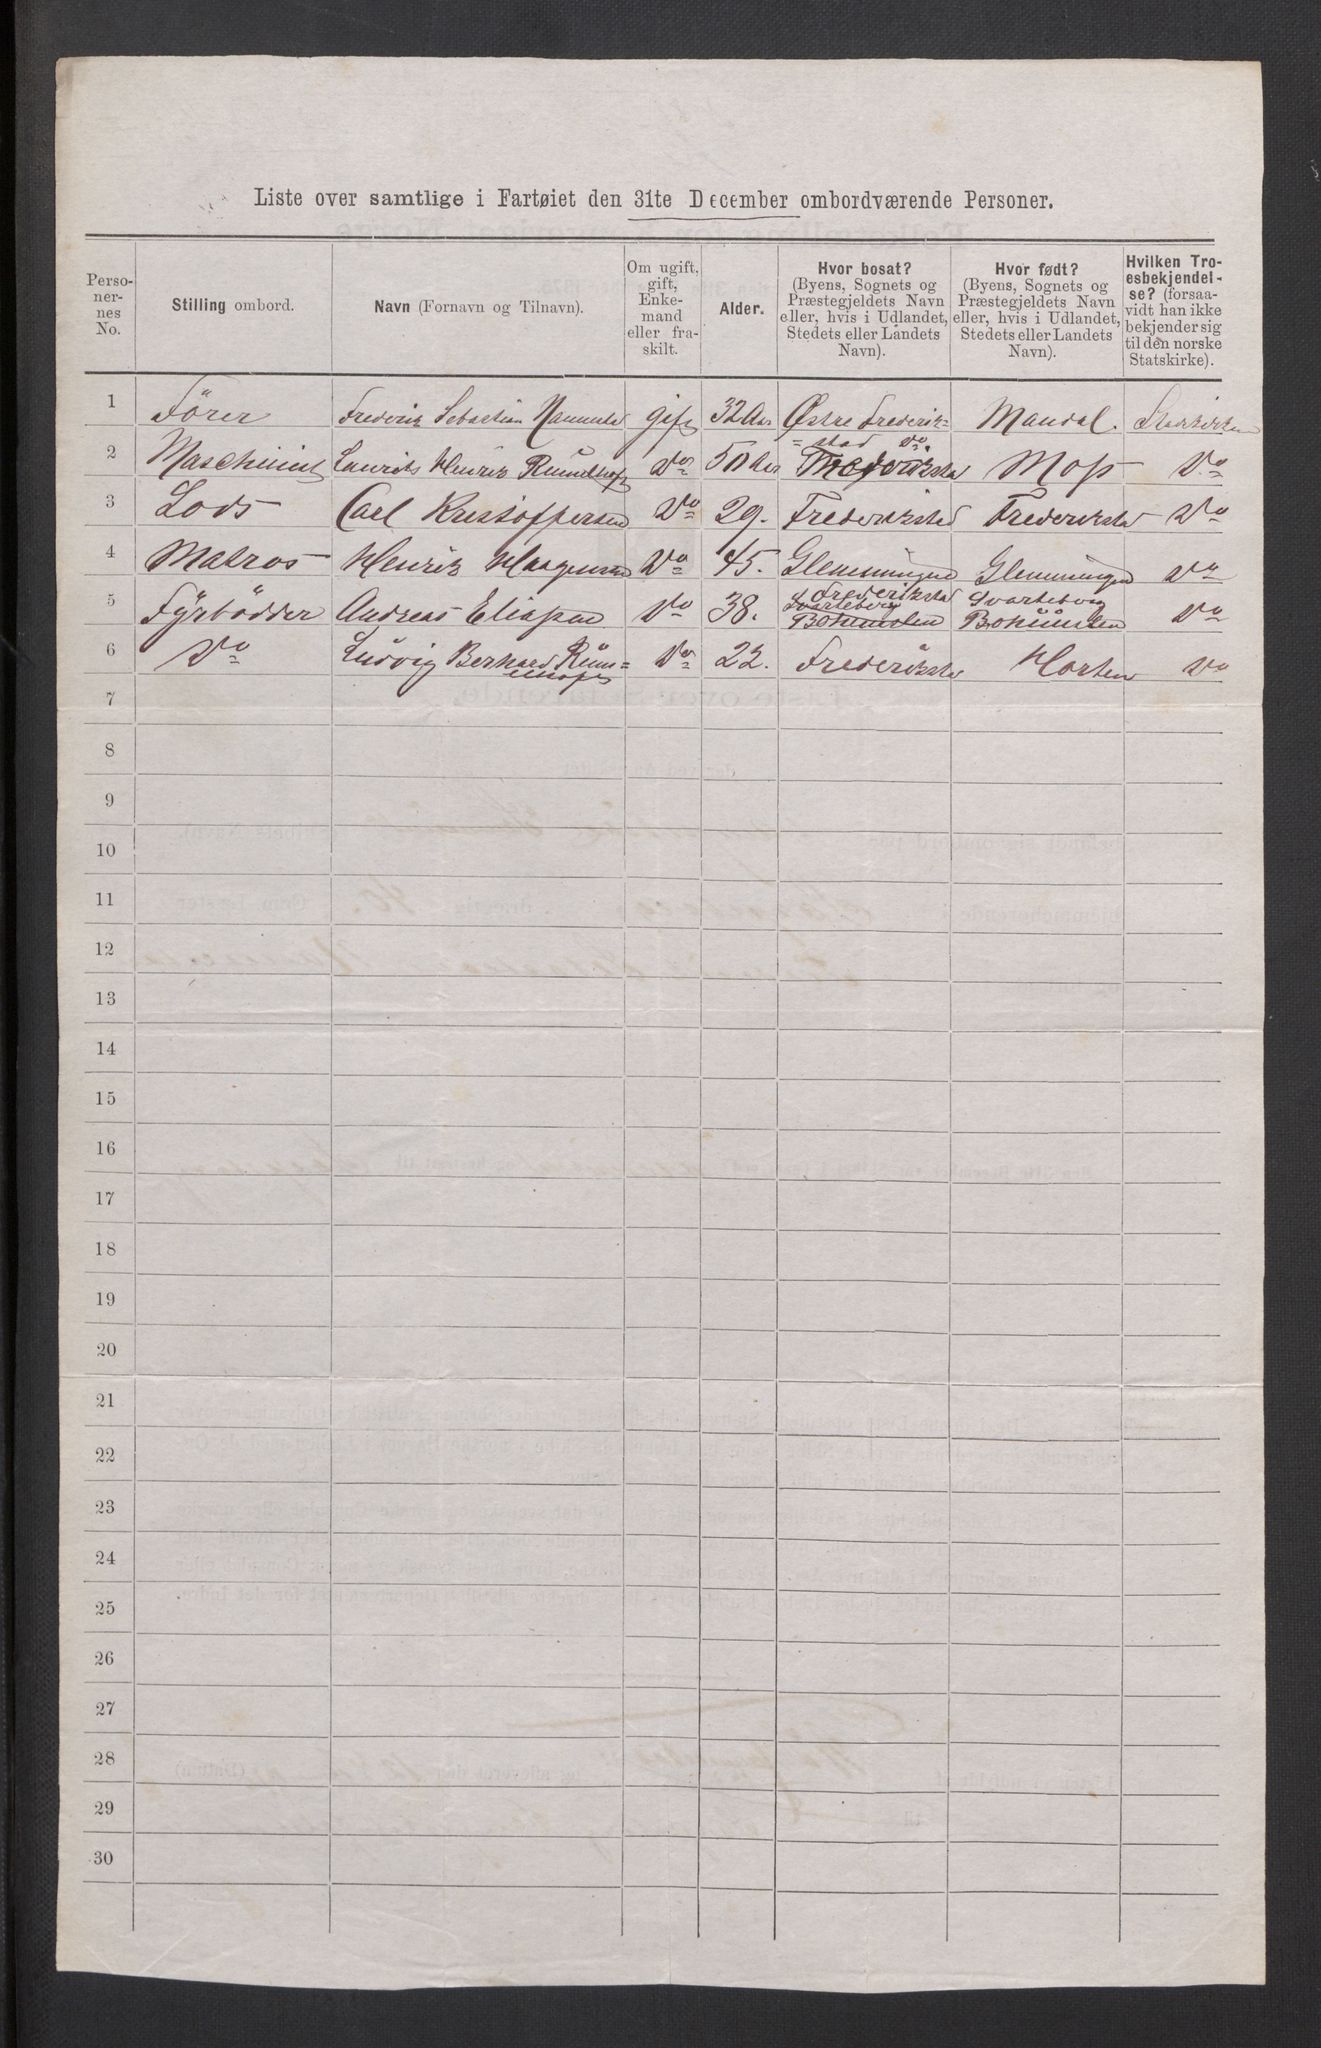 Liste over samtlige i Fartøiet den 31te December ombordværende Personer.
Perso-
ner-
nes
No.
Stilling ombord.
Navn (Fornavn og Tilnavn).
Om ugift,
gift,
Enke-
mand
eller fra-
skilt.
Alder.
Hvor bosat?
(Byens, Sognets og
Præstegjeldets Navn
eller, hvis i Udlandet,
Stedets eller Landets
Navn).
Hvor født?
(Byens, Sognets og
Præstegjeldets Navn
eller, hvis i Udlandet,
Stedets eller Landets
Navn).
Hvilken Tro-
esbekjendel-
se? (forsaa-
vidt han ikke
bekjender sig
til den norske
Statskirke).
1 Förer Frederik Sebastian gift 32 Aar Østre Frederik= Mandal. Statskirken
=stad
2 Maschinist Laurits Henrik Rumelhoff Do 50 Aar Frederikstad Moss Do
3 Lods Carl Kristoffersen Do 29. Frederiksted Frederikstad Do
4 Matros Henrik Haagensen Do 45. Glemmingen Glemmingen Do
Frederikstad
5 Fyrbödder Andreas Eliassen Do 38. Svarteborg Bohuuslen Svarteborg Bohuuslen Do
6 Do Ludvig Berhard Rüm= Do 22. Frederikstad Horten Do
elhoff
7
8
9
10
11
12
13
14
15
16
17
18
19
20
21
22
23
24
25
26
27
28
29
30